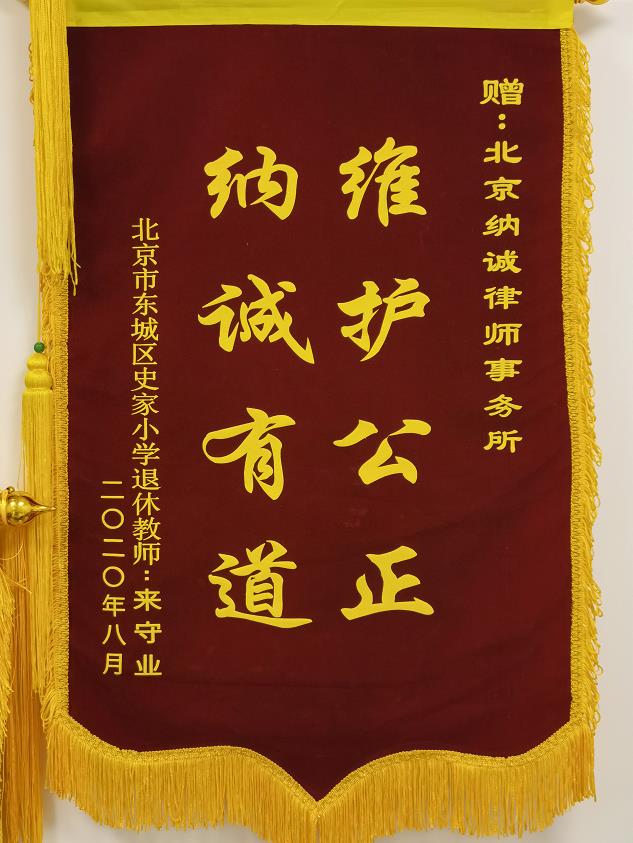 赠：北京纳诚律师事务所
维护公正
纳诚有道
北京市东城区史家小学退休教师：来守业
二〇二〇年八月